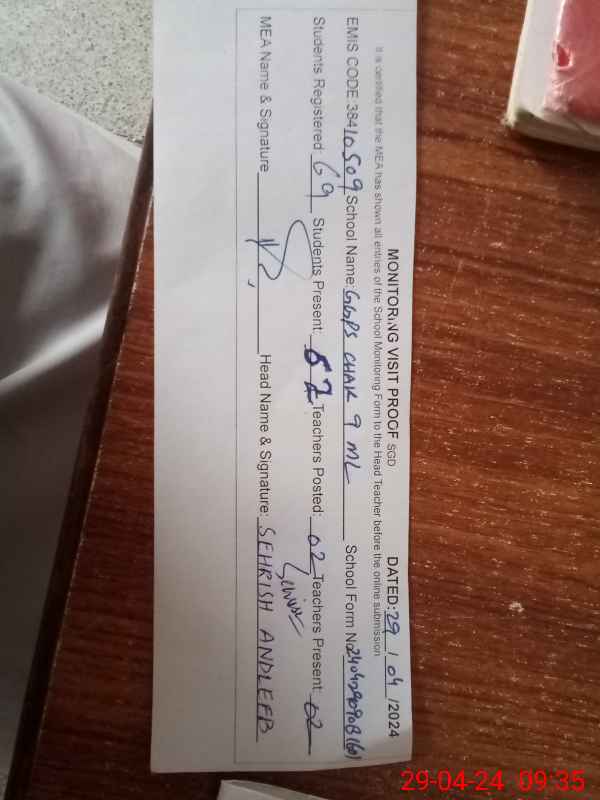 MONITORING VISIT PROOF SGD DATED: 29 / 04 /2024
It is certified that the MEA has shown all entries of the School Monitoring Form to the Head Teacher before the online submission
EMIS CODE 38410509 School Name: GGPS CHAK 9 ML School Form No
Students Registered 69 Students Present: 52 Teachers Posted: 02 Teachers Present: 02
MEA Name & Signature Head Name & Signature: SEHRISH ANDLEEB
29-04-24 09:35